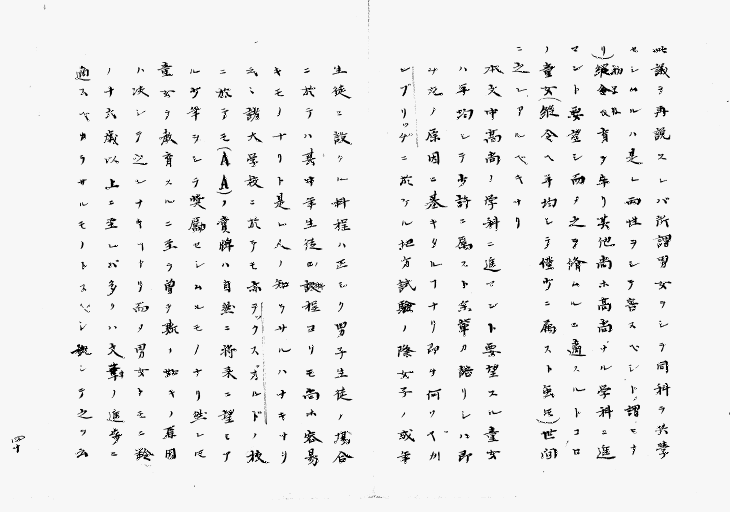 此議ヲ再説スレバ所謂男女ヲシテ同科ヲ共学
セシムルハ是レ両性ヲシテ害スベシト謂モナ
リ(縦令教育ヲ卒リ其他尚ホ高尚ナル学科ニ進
マント要望シ而メ之ヲ脩ムルニ適スルトコロ
ノ童女(縦令ヘ平均シテ僅少ニ属スト雖モ)世間
ニ之レアルベキナリ
本文中高尚ノ学科ニ進マント要望スル童女
ハ平均シテ少許ニ属スト余輩カ語リシハ即
チ左ノ原因ニ基キタルナリ即チ何ソヤ
ンブリッヂニ於ケル地方試験ノ際女子ノ或年
生徒ニ設クル科程ハ正シク男子生徒ノ場合
ニ於テハ其中年生徒ノ課程ヨリモ尚ホ容易
キモノナリト是レ人ノ知ラサルハナキナリ
云々諸大学校ニ於テモ亦ヲクスオルドノ校
ニ於テモ(AA)ノ賞牌ハ自然ニ将来ニ望ミア
ル少年ヲシテ奨励セシムルモノナリ然レモ
童女ヲ教育スルニ至ヲ曽テ斯ノ如キノ原因
ハ決シテ之レナキナリ而メ男女トモニ齢
ノ十六歳以上ニ至レバ多クハ文事ノ進歩ニ
適スベカラサルモノトスベシ概シテ之ヲ云
四十